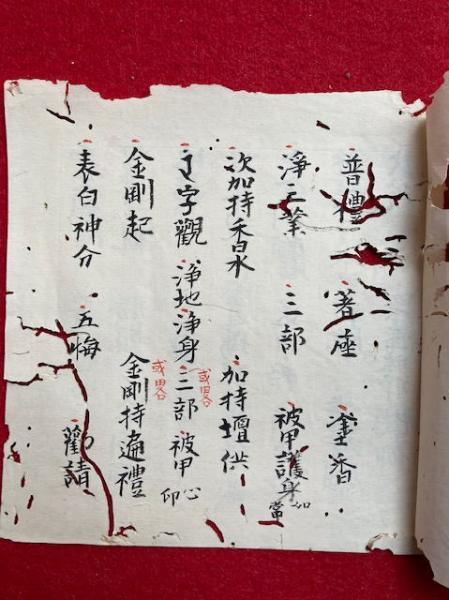 普禮 著座 塗香
淨三業 三部 被甲護身 如常
次加持香水 加持壇供
字觀 淨地淨身 或畧 三部 被甲
金剛起 或畧 金剛持遍禮
表白神分 五悔 勸請